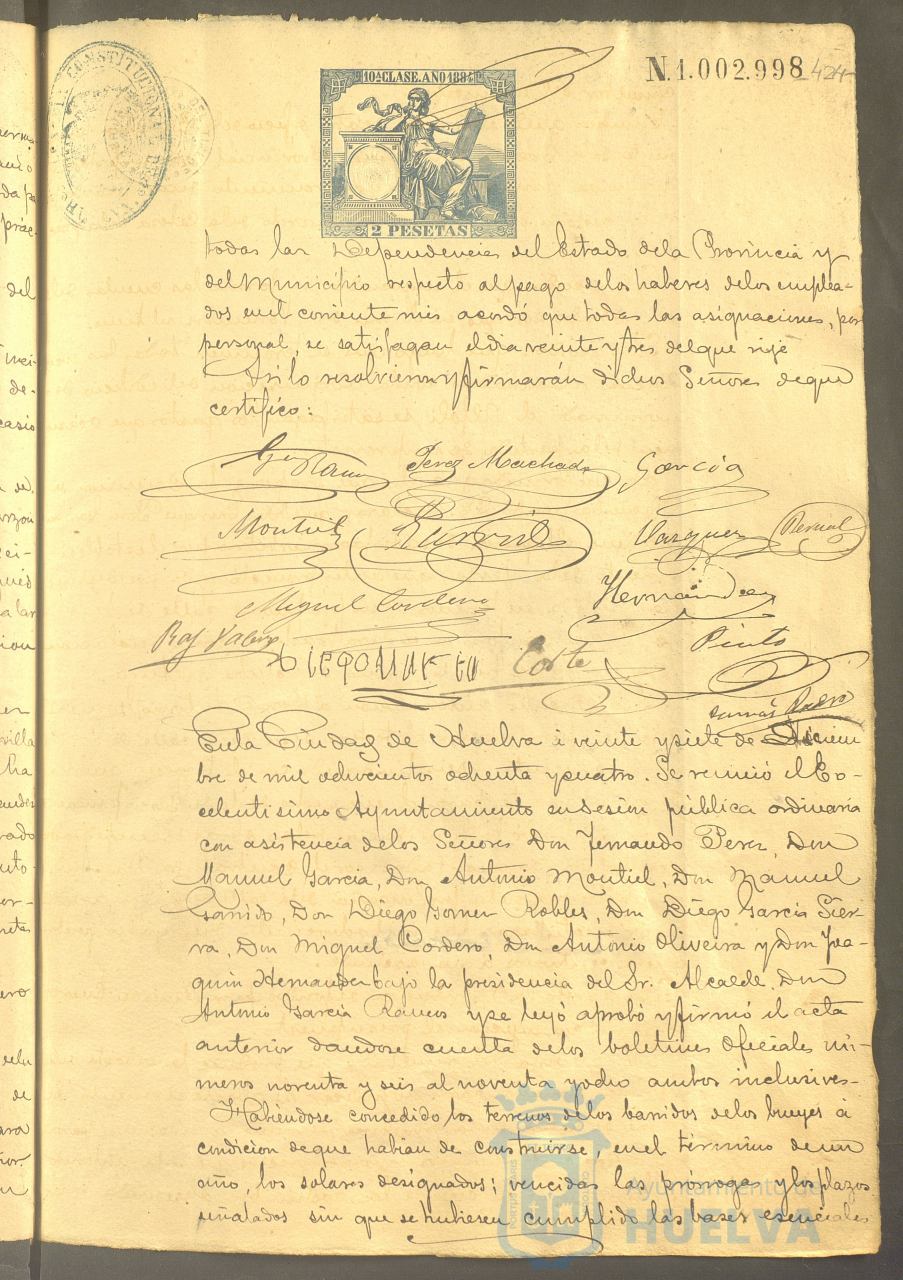 10ª CLASE. AÑO 1884
N.1.002.998
424
2 PESETAS
todas las Dependencias del Estado dela Provincia y
del Municipio respecto al pago delos haberes delos emplea-
dos enel corriente mes acordó que todas las asignaciones, por
personal, se satisfagan eldia veinte y tres delque rije
Asi lo resolvieron y firmarán dichos Señores deque
certifico:
Perez Machado García
Montiel Garrido Vazquez Bernal
Miguel Cordero Hernandez
Pinto
DIEGO
Enla Ciudad de Huelva á veinte ysiete de Diciem
bre de mil ochocientos ochenta ycuatro. Se reunió el Ex-
celentisimo Ayuntamiento ensesion pública ordinaria
con asistencia delos Señores Don Fernando Perez, Don
Manuel Garcia, Don Antonio Montiel, Don Manuel
Garrido, Don Diego Gomez Robles, Don Diego Garcia Sier-
ra, Don Miguel Cordero, Don Antonio Oliveira y Don Joa-
quin Hernandez bajo la presidencia del Sr. Alcalde Don
Antonio García Ramos yse leyó aprobó yfirmó el acta
anterior dandose cuenta delos boletines Oficiales nú-
meros noventa y seis al noventa yocho ambos inclusives-
Habiéndose concedido los terrenos delos barridos delos bueyes á
condicion deque habian de construirse, enel término deun
año, los solares designados; vencidas las prórrogas ylos plazos
señalados sin que sehubiesen cumplido las bases esenciales
Ayuntamiento de
HUELVA